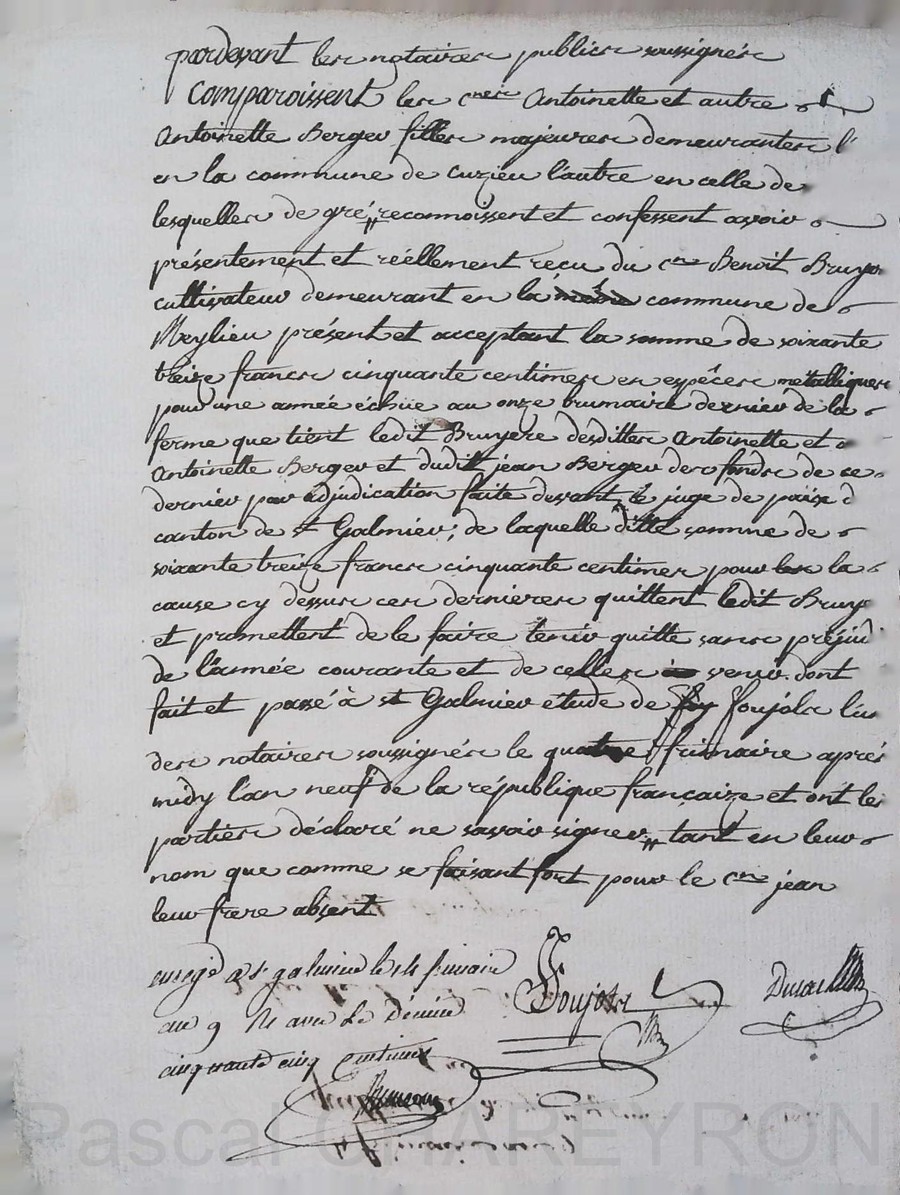 pardevant les notaires publics soussignés
Comparoissent les cnes Antoinette et autre
Antoinette Berger filles majeures demeurantes l'
en la commune de cuzieu l'autre en celle de
lesquelles de gré "reconnoissent et confessent avoir
présentement et réellement recu du cen Benoit Bruye
cultivateur demeurant en la même commune de
Meylieu présent et acceptant la somme de soixante
treize francs cinquante centimes en espéces métalliques
pour une année échüe au onze brumaire dernier de la
ferme que tient ledit Bruyere desdittes Antoinette et
Antoinette Berger et dudit jean Berger des fonds de ce
dernier par adjudication faite devant le juge de paix d
canton de st Galmier; de laquelle ditte somme de
soixante treize francs cinquante centimes pour les la
cause cy dessus ces dernieres quittent ledit Bruye
et promettent de le faire tenir quitte sans préjudi
de l'année courante et de celles à venir. dont
fait et passé à st Galmier étude de foujols l'un
des notaires soussignés le quatre frimaire aprés
midy l'an neuf de la république françaize et ont les
parties déclaré ne savoir signer, "tant en leur
nom que comme se faisant fort pour le cen jean
leur frere absent
enregé a st galmier le 14 frimaire
an 9 Rt avec le Dixiéme
cinquante cinq centimes
foujols
Pascal CHAREYRON